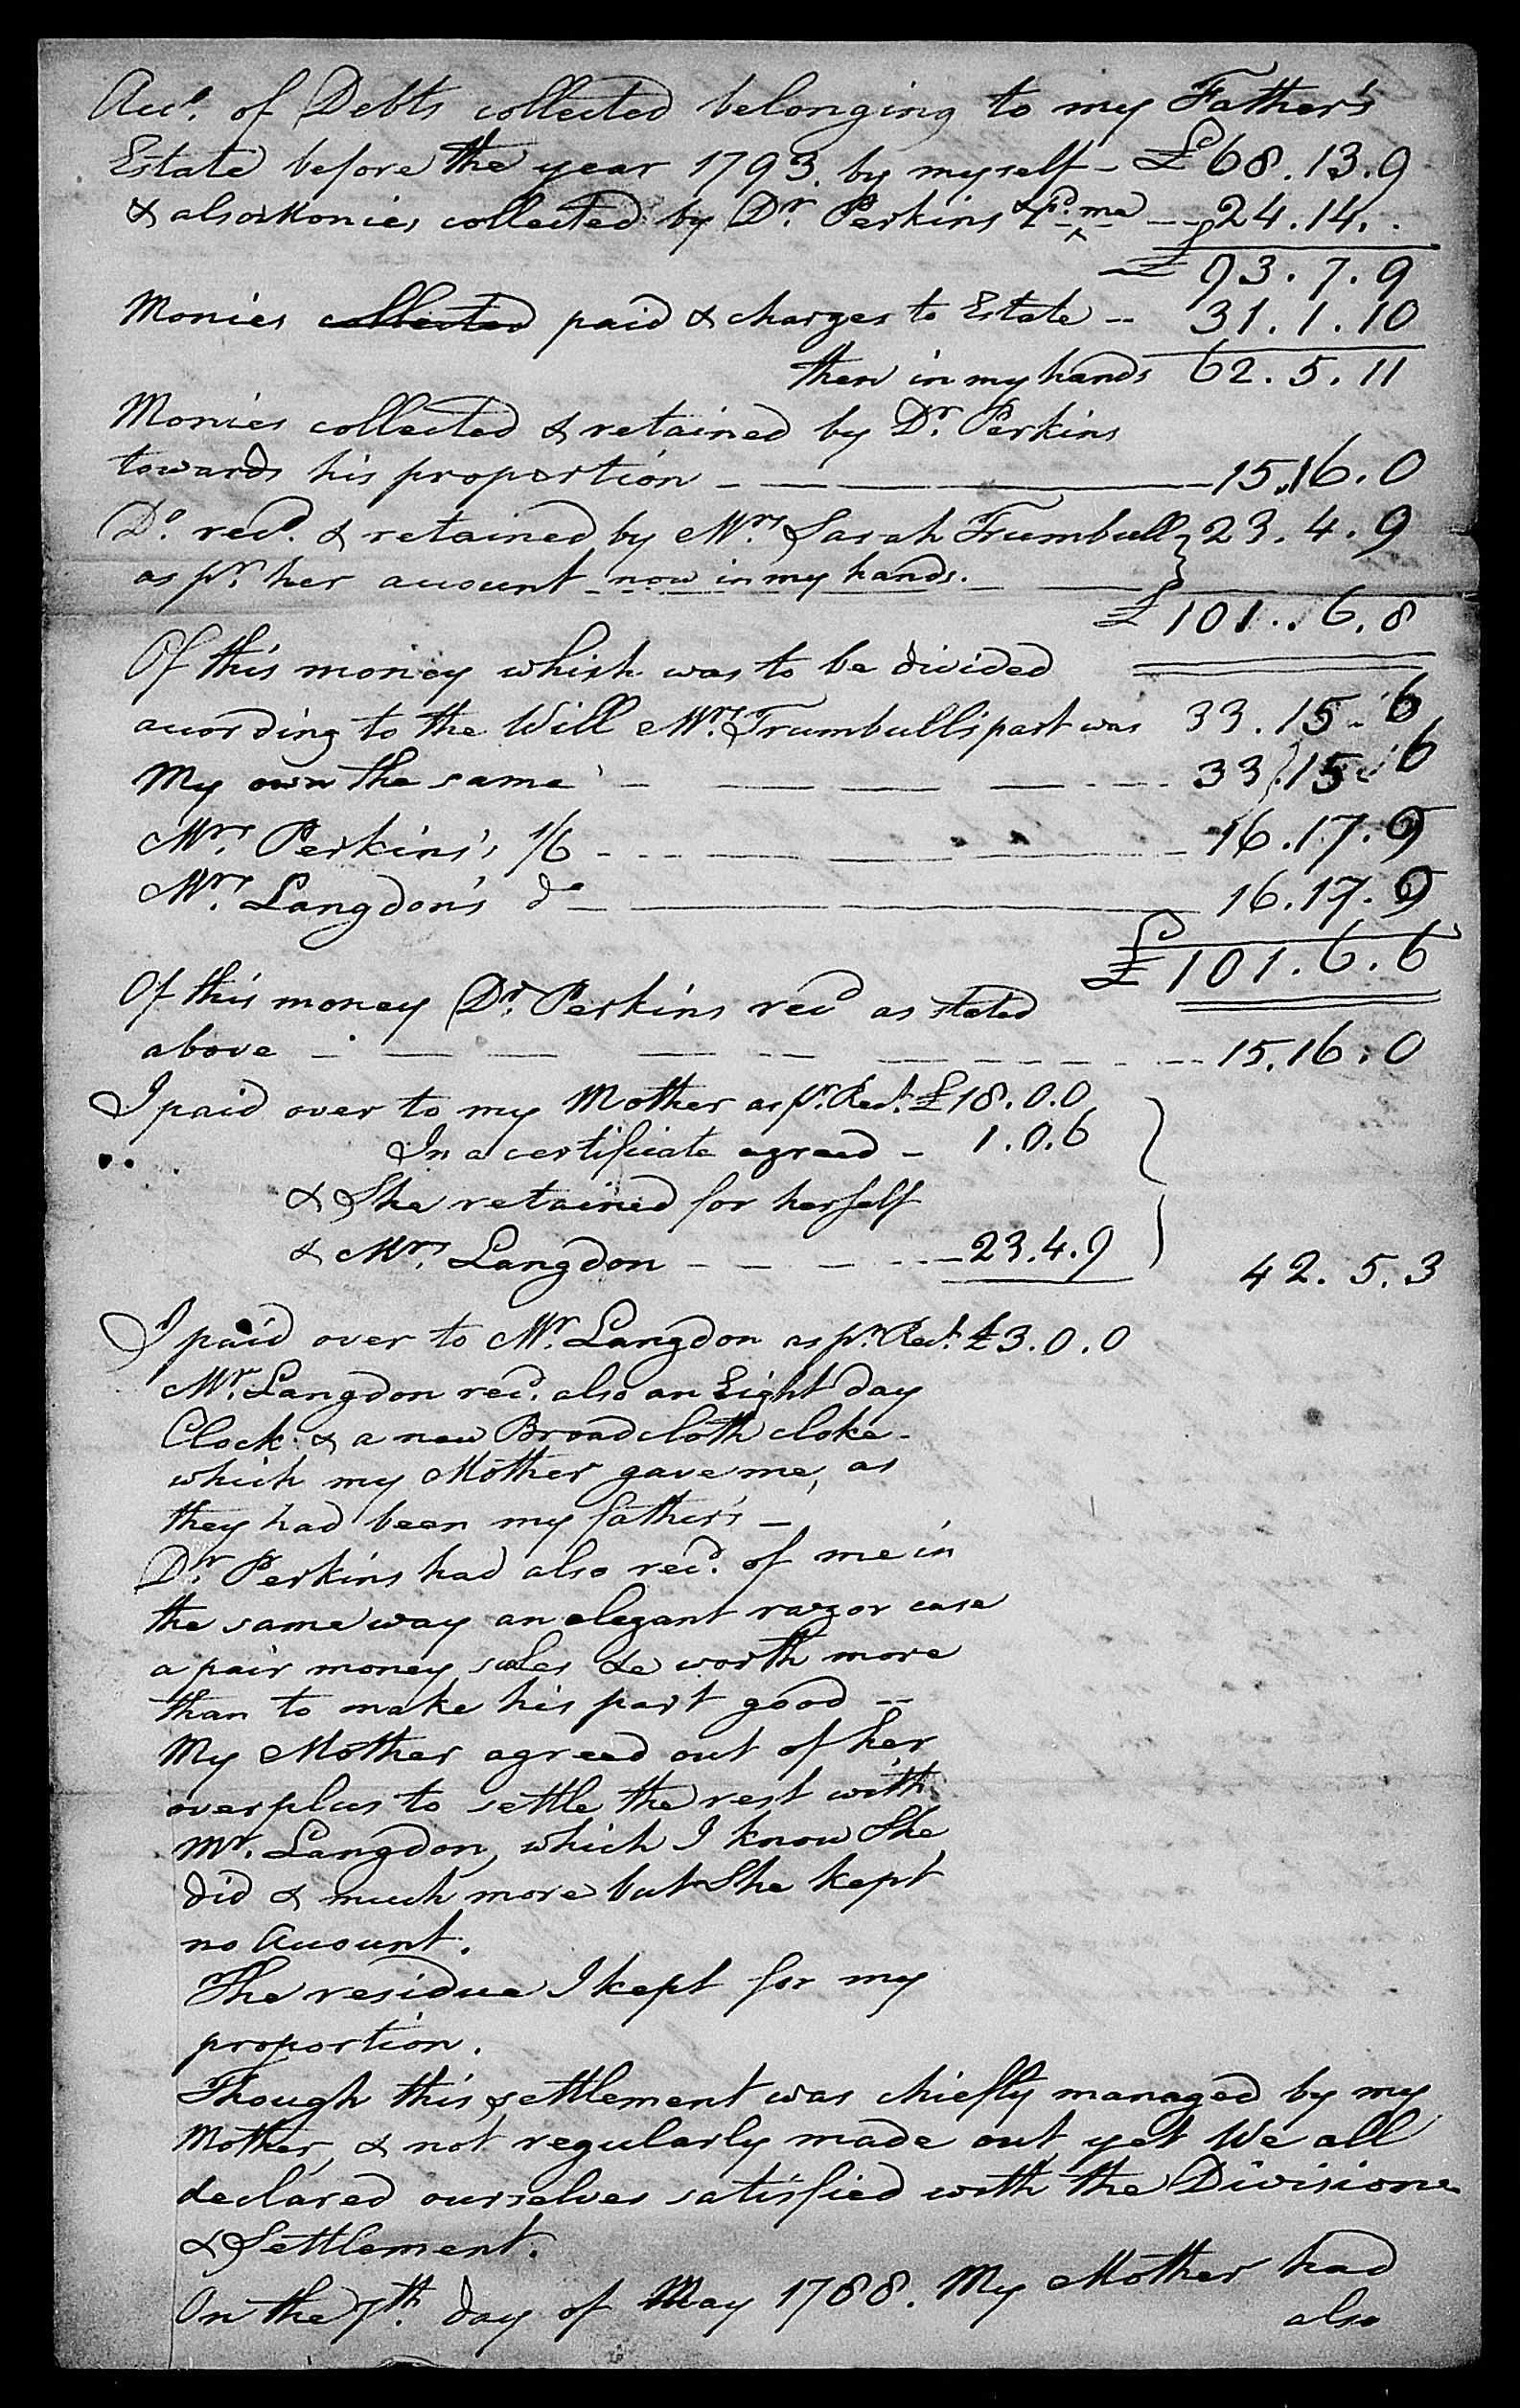 Acct. of Debts collected belonging to my Father's
Estate before the year 1793. by myself - £68.13.9
& also Monies collected by Dr. Perkins & pd. me -- 24.14..
£93.7.9
Monies collected paid & charges to Estate -- 31.1.10
then in my hands 62.5.11
Monies collected & retained by Dr. Perkins
towards his proportion - — — — 15.16.0
Do. recd. & retained by Mrs. Sarah Trumbull } 23.4.9
as pr. her account - now in my hands. - —
£101..6.8
Of this money which was to be divided
acording to the Will Mrs. Trumbull's part was 33.15.6
My own the same - — — — - - 33.15.6
Mrs. Perkins's 1/6 - - - — — — 16.17.9
Mrs. Langdon's do - — — 16.17.9
£101.6.6
Of this money Dr. Perkins recd as stated
above - — — — — - - - 15.16.0
I paid over to my Mother as pr. Rect. £18.0.0
& In a certificate agreed - 1.0.6
& She retained for herself
& Mrs. Langdon - - - - - 23.4.9 } 42.5.3
I paid over to Mr. Langdon as pr. Rect. £3.0.0
Mr. Langdon recd. also an Eight day
Clock & a new Broad cloth cloke -
which my Mother gave me, as
they had been my father's -
Dr. Perkins had also recd. of me in
the same way an elegant razor case
a pair money scales &c worth more
than to make his part good --
My Mother agreed out of her
overplus to settle the rest with
Mr. Langdon, which I know She
did & much more but She kept
no Account.
The residue I kept for my
proportion.
Though this settlement was chiefly managed by my
Mother, & not regularly made out yet We all
declared ourselves satisfied with the Divisione
& Settlement.
On the 7th. day of May 1788. My Mother had
also